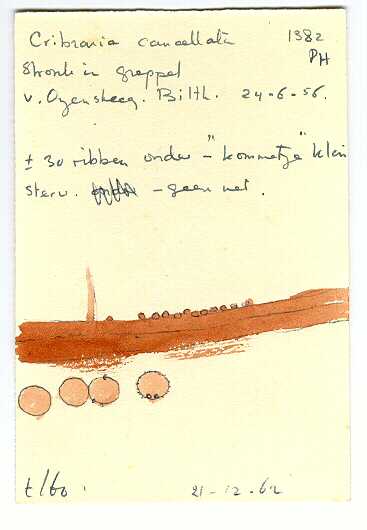 Cribraria cancellata 1382
Stronk in greppel PH
v. Oyensteeg. Bilth. 24-6-56.
± 30 ribben onder - "kommetje" klein
sterv. - geen net.
t/60 21-12-62